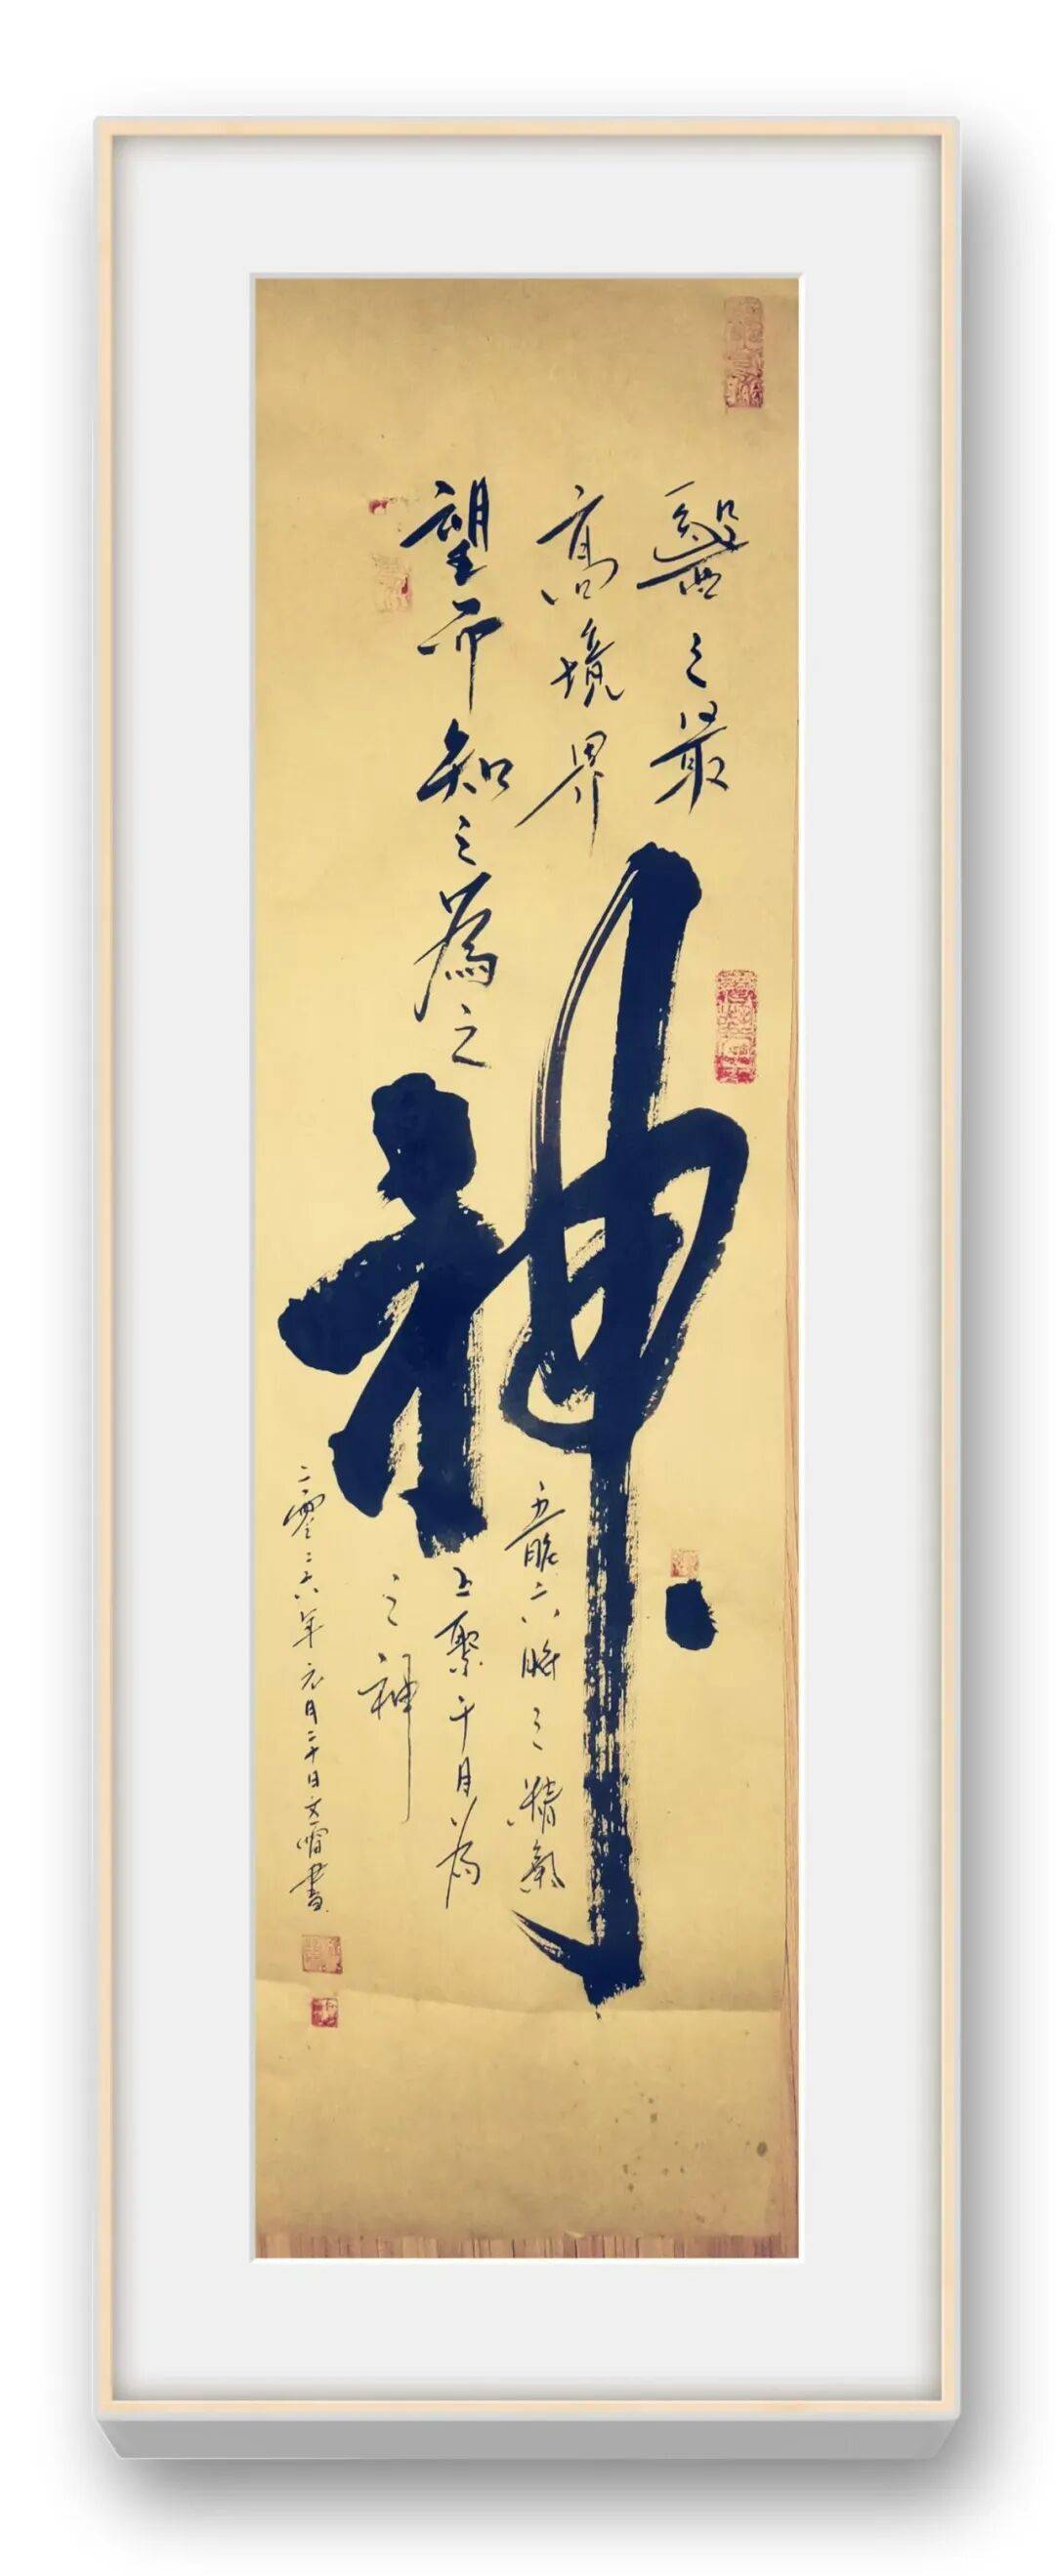 醫之最
高境界
望而知之為之
神
五臟六腑之精氣
上聚于目為
之神
二零二六年元月二十日文書